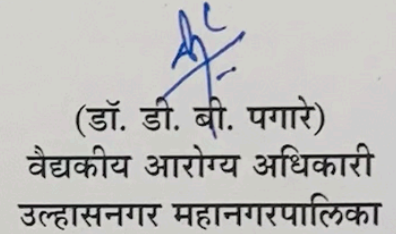 (डॉ. डी. बी. पगारे)
वैद्यकीय आरोग्य अधिकारी
उल्हासनगर महानगरपालिका